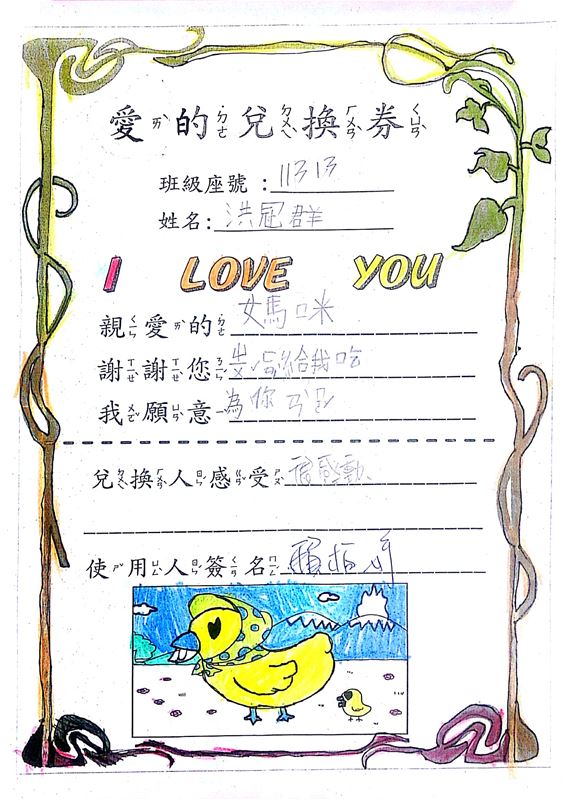 愛ㄞˋ的ㄉㄜ˙兌ㄉㄨㄟˋ換ㄏㄨㄢˋ券ㄑㄩㄢˋ
班級座號：11313
姓名：洪冠群
I LOVE YOU
親ㄑㄧㄣ愛ㄞˋ的ㄉㄜ˙媽咪
謝ㄒㄧㄝˋ謝ㄒㄧㄝˋ您ㄋㄧㄣˊ ㄓㄨˇ給我吃
我ㄨㄛˇ願ㄩㄢˋ意ㄧˋ為你
兌ㄉㄨㄟˋ換ㄏㄨㄢˋ人ㄖㄣˊ感ㄍㄢˇ受ㄕㄡˋ感動
使ㄕˇ用ㄩㄥˋ人ㄖㄣˊ簽ㄑㄧㄢ名ㄇㄧㄥˊ